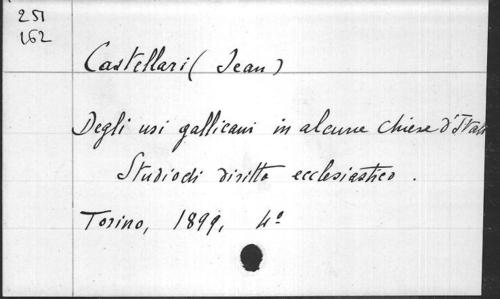 251
162
Castellari (Jean)
Degli usi gallicani in alcune chiese d'Itali
Studio di diritto ecclesiastico.
Torino, 1899, 4°